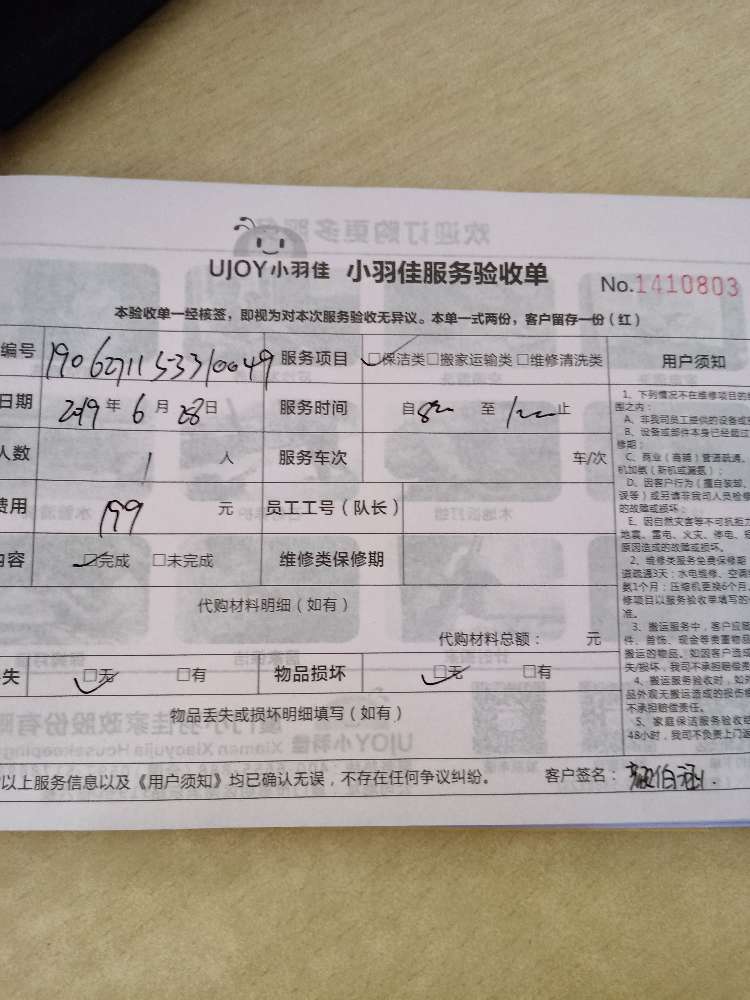 UJOY小羽佳 小羽佳服务验收单 No.1410803
本验收单一经核签，即视为对本次服务验收无异议。本单一式两份，客户留存一份（红）
编号 1906271153310049 服务项目 □保洁类□搬家运输类□维修清洗类 用户须知
日期 2019年6月28日 服务时间 自8 至1 止
人数 1 人 服务车次 车/次
费用 199 元 员工工号（队长）
内容 □完成 □未完成 维修类保修期
代购材料明细（如有）
代购材料总额： 元
失 □无 □有 物品损坏 □无 □有
物品丢失或损坏明细填写（如有）
以上服务信息以及《用户须知》均已确认无误，不存在任何争议纠纷。 客户签名：
1、下列情况不在维修项目的
围之内：
A、非我司员工提供的设备或
B、设备或部件本身已经超过
修期；
C、商业（商铺）管道疏通、
机加氨（新机或漏氨）；
D、因客户行为（擅自装卸、
误等）或另请非我司人员检修
的故障或损坏；
E、因自然灾害等不可抗拒力
地震、雷电、火灾、停电、
原因造成的故障或损坏。
2、维修类服务免费保修期
道疏通3天；水电维修、空调
氨1个月；压缩机更换6个月
修项目以服务验收单填写的
准。
3、搬运服务中，客户应
件、首饰、现金等贵重物品
搬运的物品。如因客户造成
失/损坏，我司不承担赔偿责
4、搬运服务验收时，如对
品外观无搬运造成的损伤
不承担赔偿责任。
5、家庭保洁服务验收
48小时，我司不负责上门返